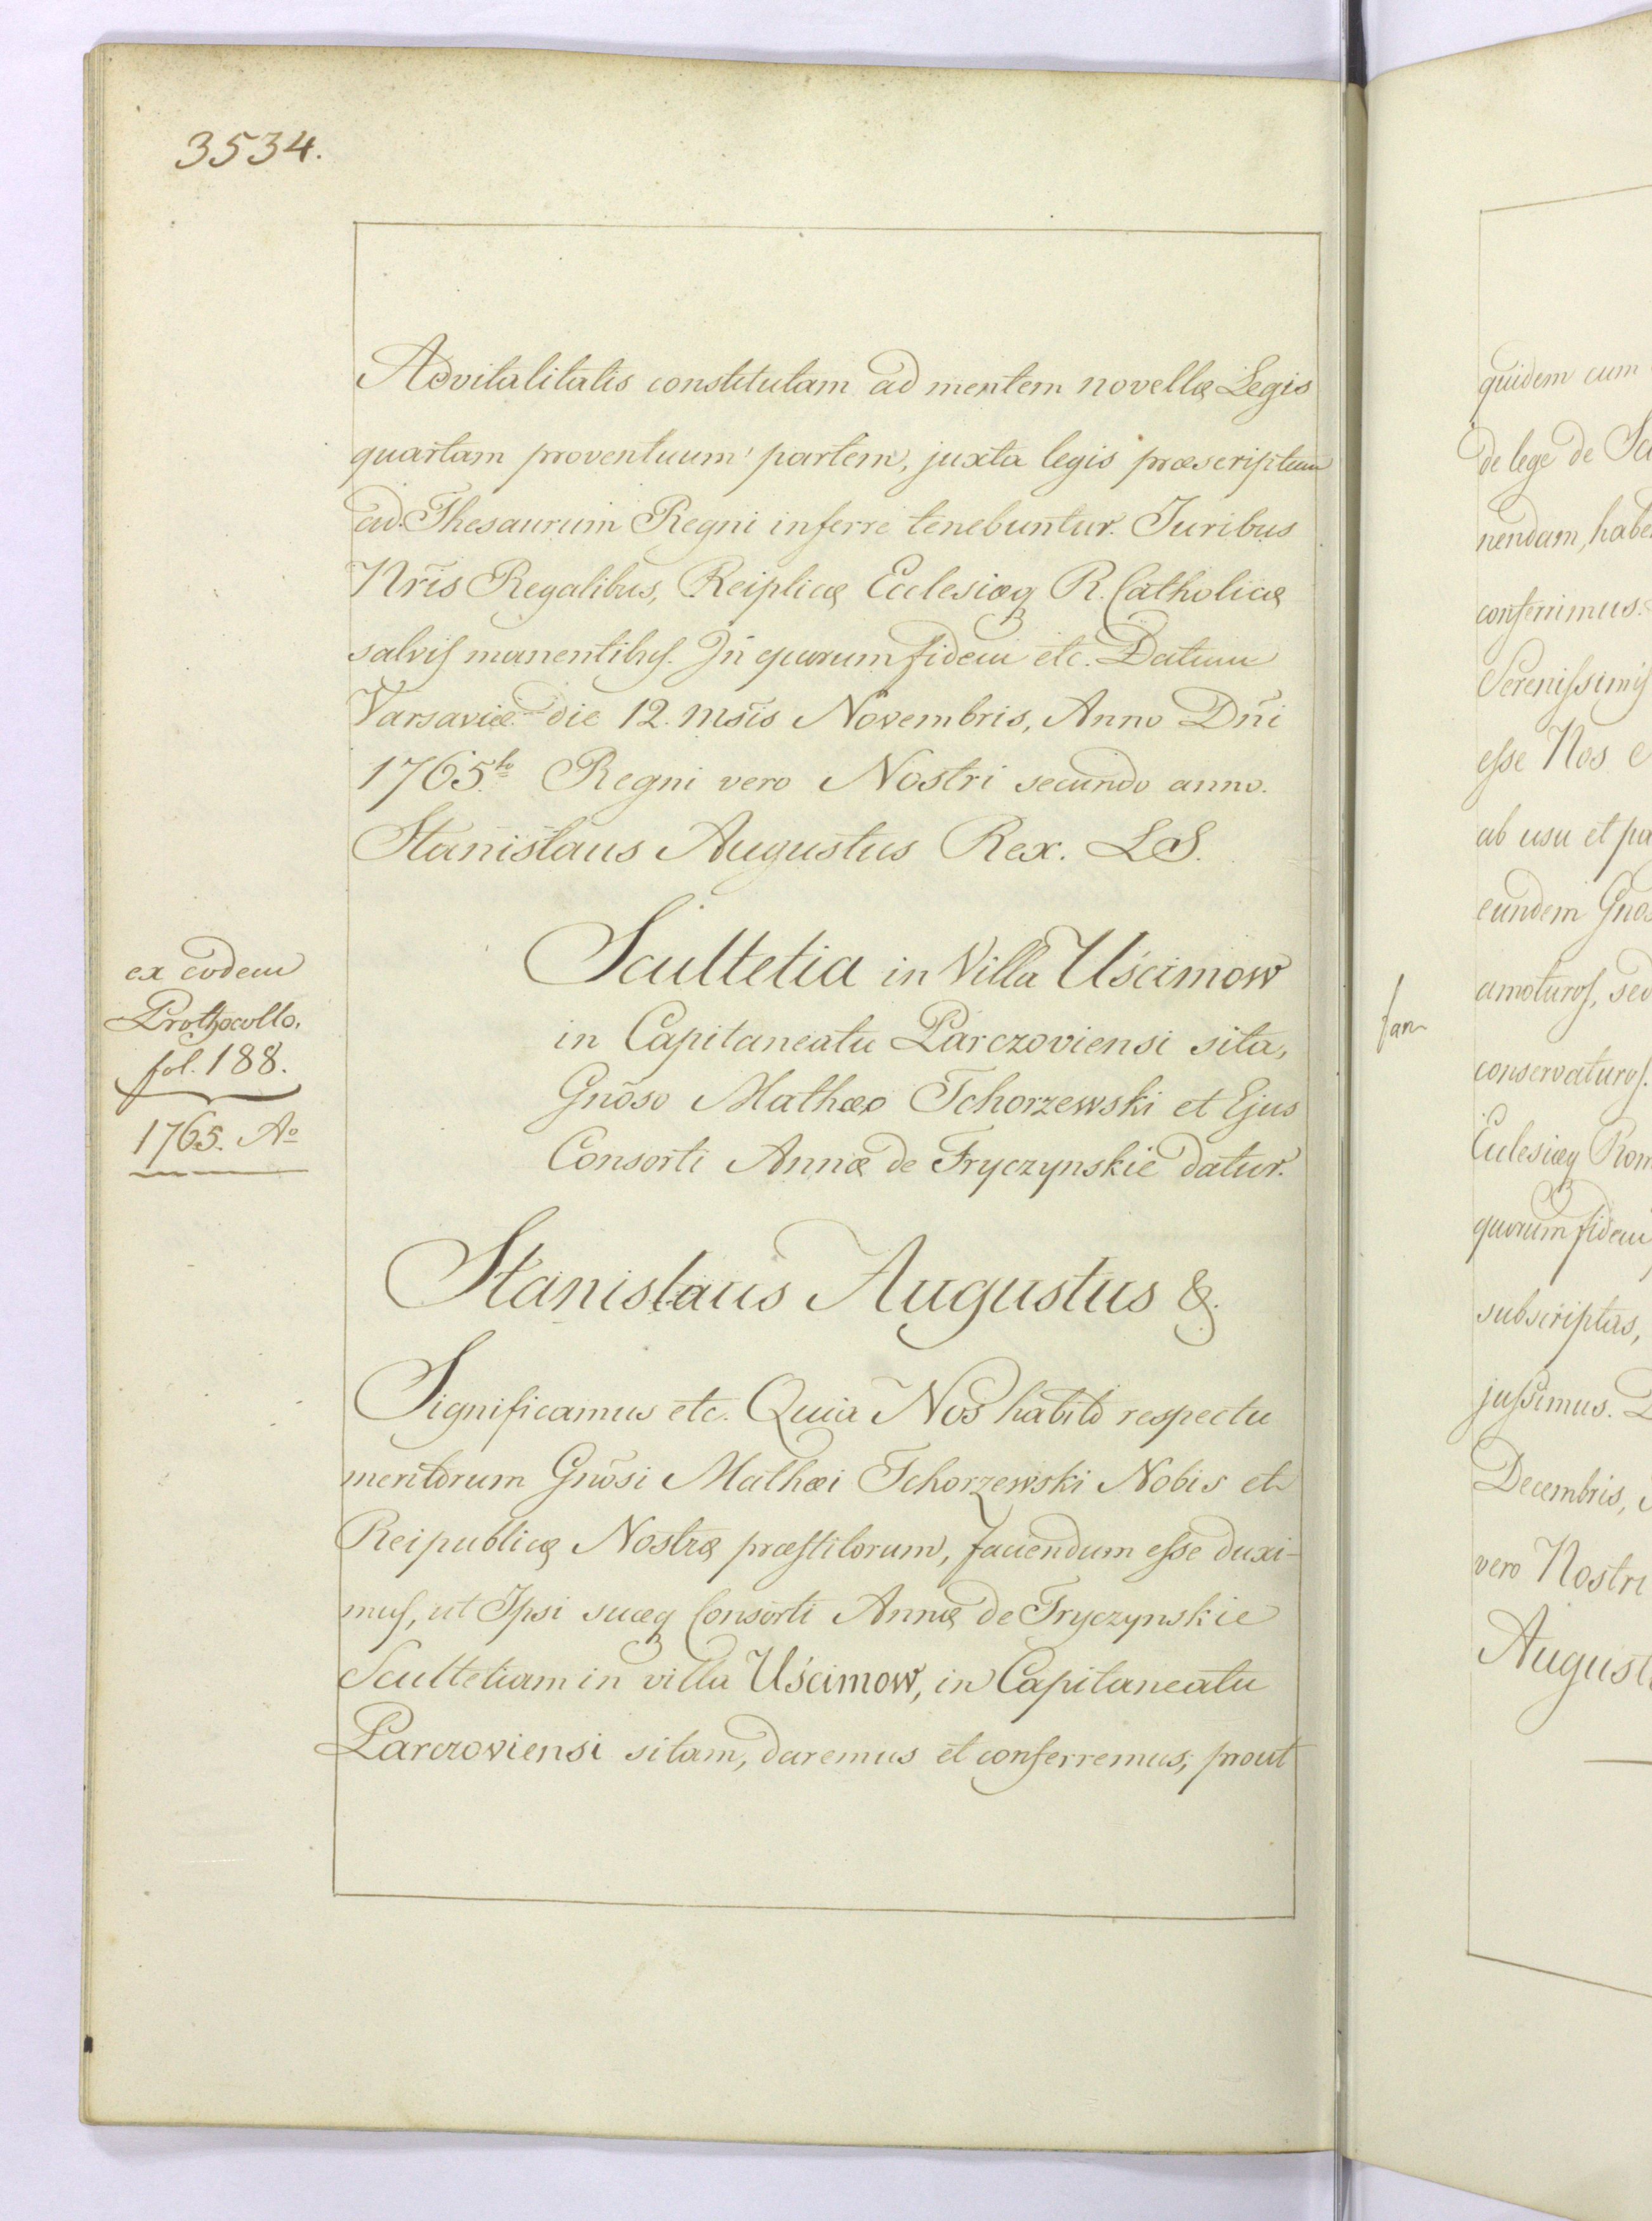 3534.
Advitalitatis constitutam ad mentem novellæ Legis
quartam proventuum partem, juxta legis præscriptum
ad Thesaurum Regni inferre tenebuntur. Juribus
Nr̃is Regalibus, Reiplicæ Ecclesiæq R. Catholicæ
salvis manentibus. In quorum fidem etc. Datum
Varsaviæ die 12. Ms̃is Novembris, Anno Dñi
1765.to Regni vero Nostri secundo anno.
Stanislaus Augustus Rex. LS.
ex eodem
Prothocollo.
fol. 188.
1765. Ao
Scultetia in Villa Uścimow
in Capitaneatu Parczoviensi sita,
Gnõso Mathæo Tchorzewski et Ejus
Consorti Annæ de Tryczynskie datur.
Stanislaus Augustus &.
Significamus etc. Quia Nos habito respectu
meritorum Gnõsi Mathæi Tchorzewski Nobis et
Reipublicæ Nostræ præstitorum, faciendum esse duxi-
mus, ut Ipsi suæq Consorti Annæ de Tryczynskie
Scultetiam in villa Uścimow, in Capitaneatu
Parczoviensi sitam, daremus et conferremus, prout
quidem cum
de lege de
nendam, habe
conferimus.
Serenissimis
esse Nos e
ab usu et pa
eundem Gnos
amoturos, sed
conservaturos.
Ecclesiæq Rom
quorum fidem
subscriptas,
jussimus. D
Decembris,
vero Nostri
August